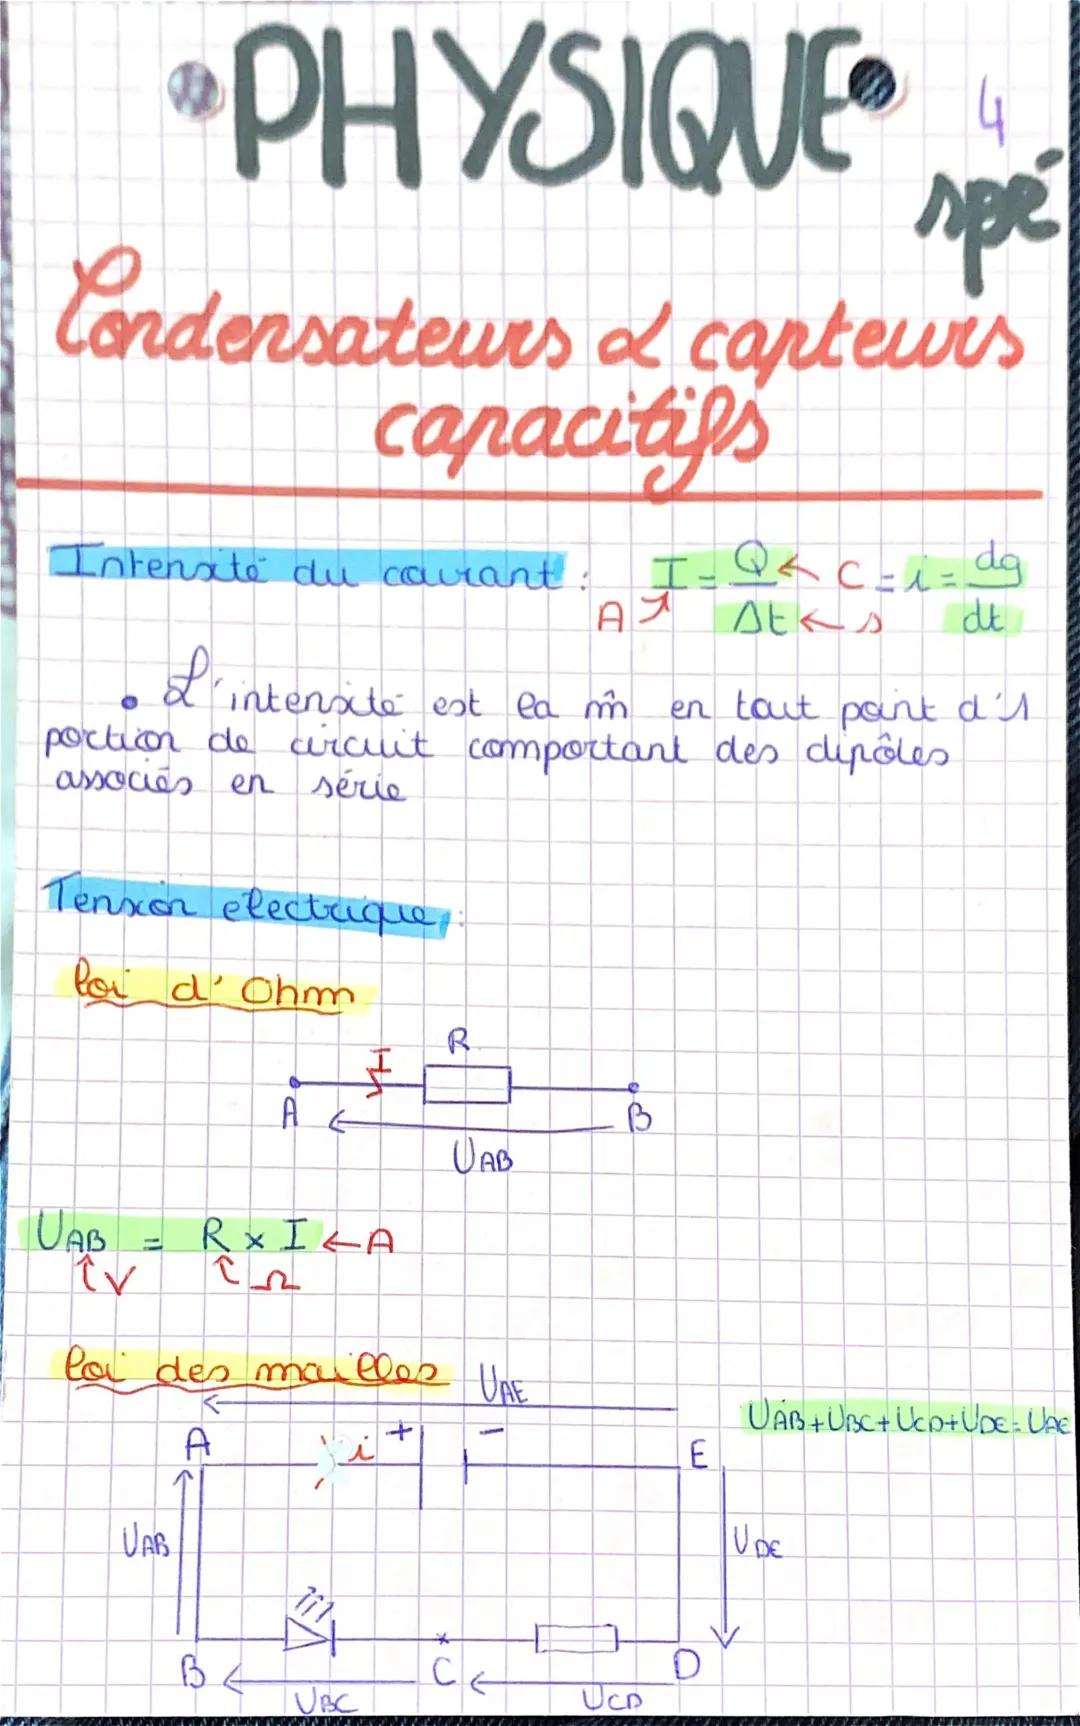 PHYSIQUE
4
spé
Condensateurs & capteurs
capacitifs
Intensité du courant : I = Q ← C = i = dq
A ↗ Δt ← s dt
• L'intensité est la m̂ en tout point d'1
portion de circuit comportant des dipôles
associés en série
Tension electrique :
loi d'Ohm
R
I
A B
UAB
UAB = R x I ← A
↑ V ↑ Ω
loi des mailles
UAE
UAB+UBC+UCD+UDE=UAE
A i + - E
UAB UDE
B C D
UBC UCD